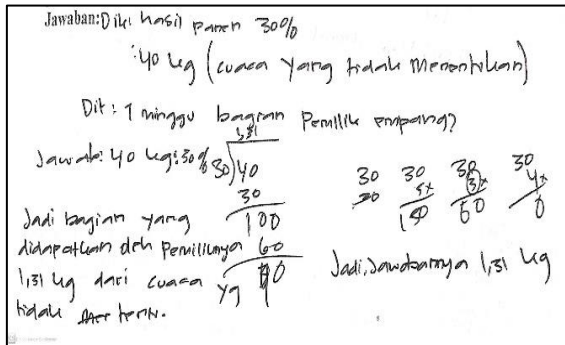 Jawaban: Dik: hasil panen 30%
: 40 kg (cuaca yang tidak menentukan)
Dit: 1 minggu bagian Pemilik empang?
Jawab: 40 kg : 30%
1,31
30) 40
30
100
60
30
30
30 30 30
4x
0
Jadi bagian yang
didapatkan oleh Pemiliknya
1,31 kg dari cuaca yg
tidak tentu.
Jadi, Jawabannya 1,31 kg